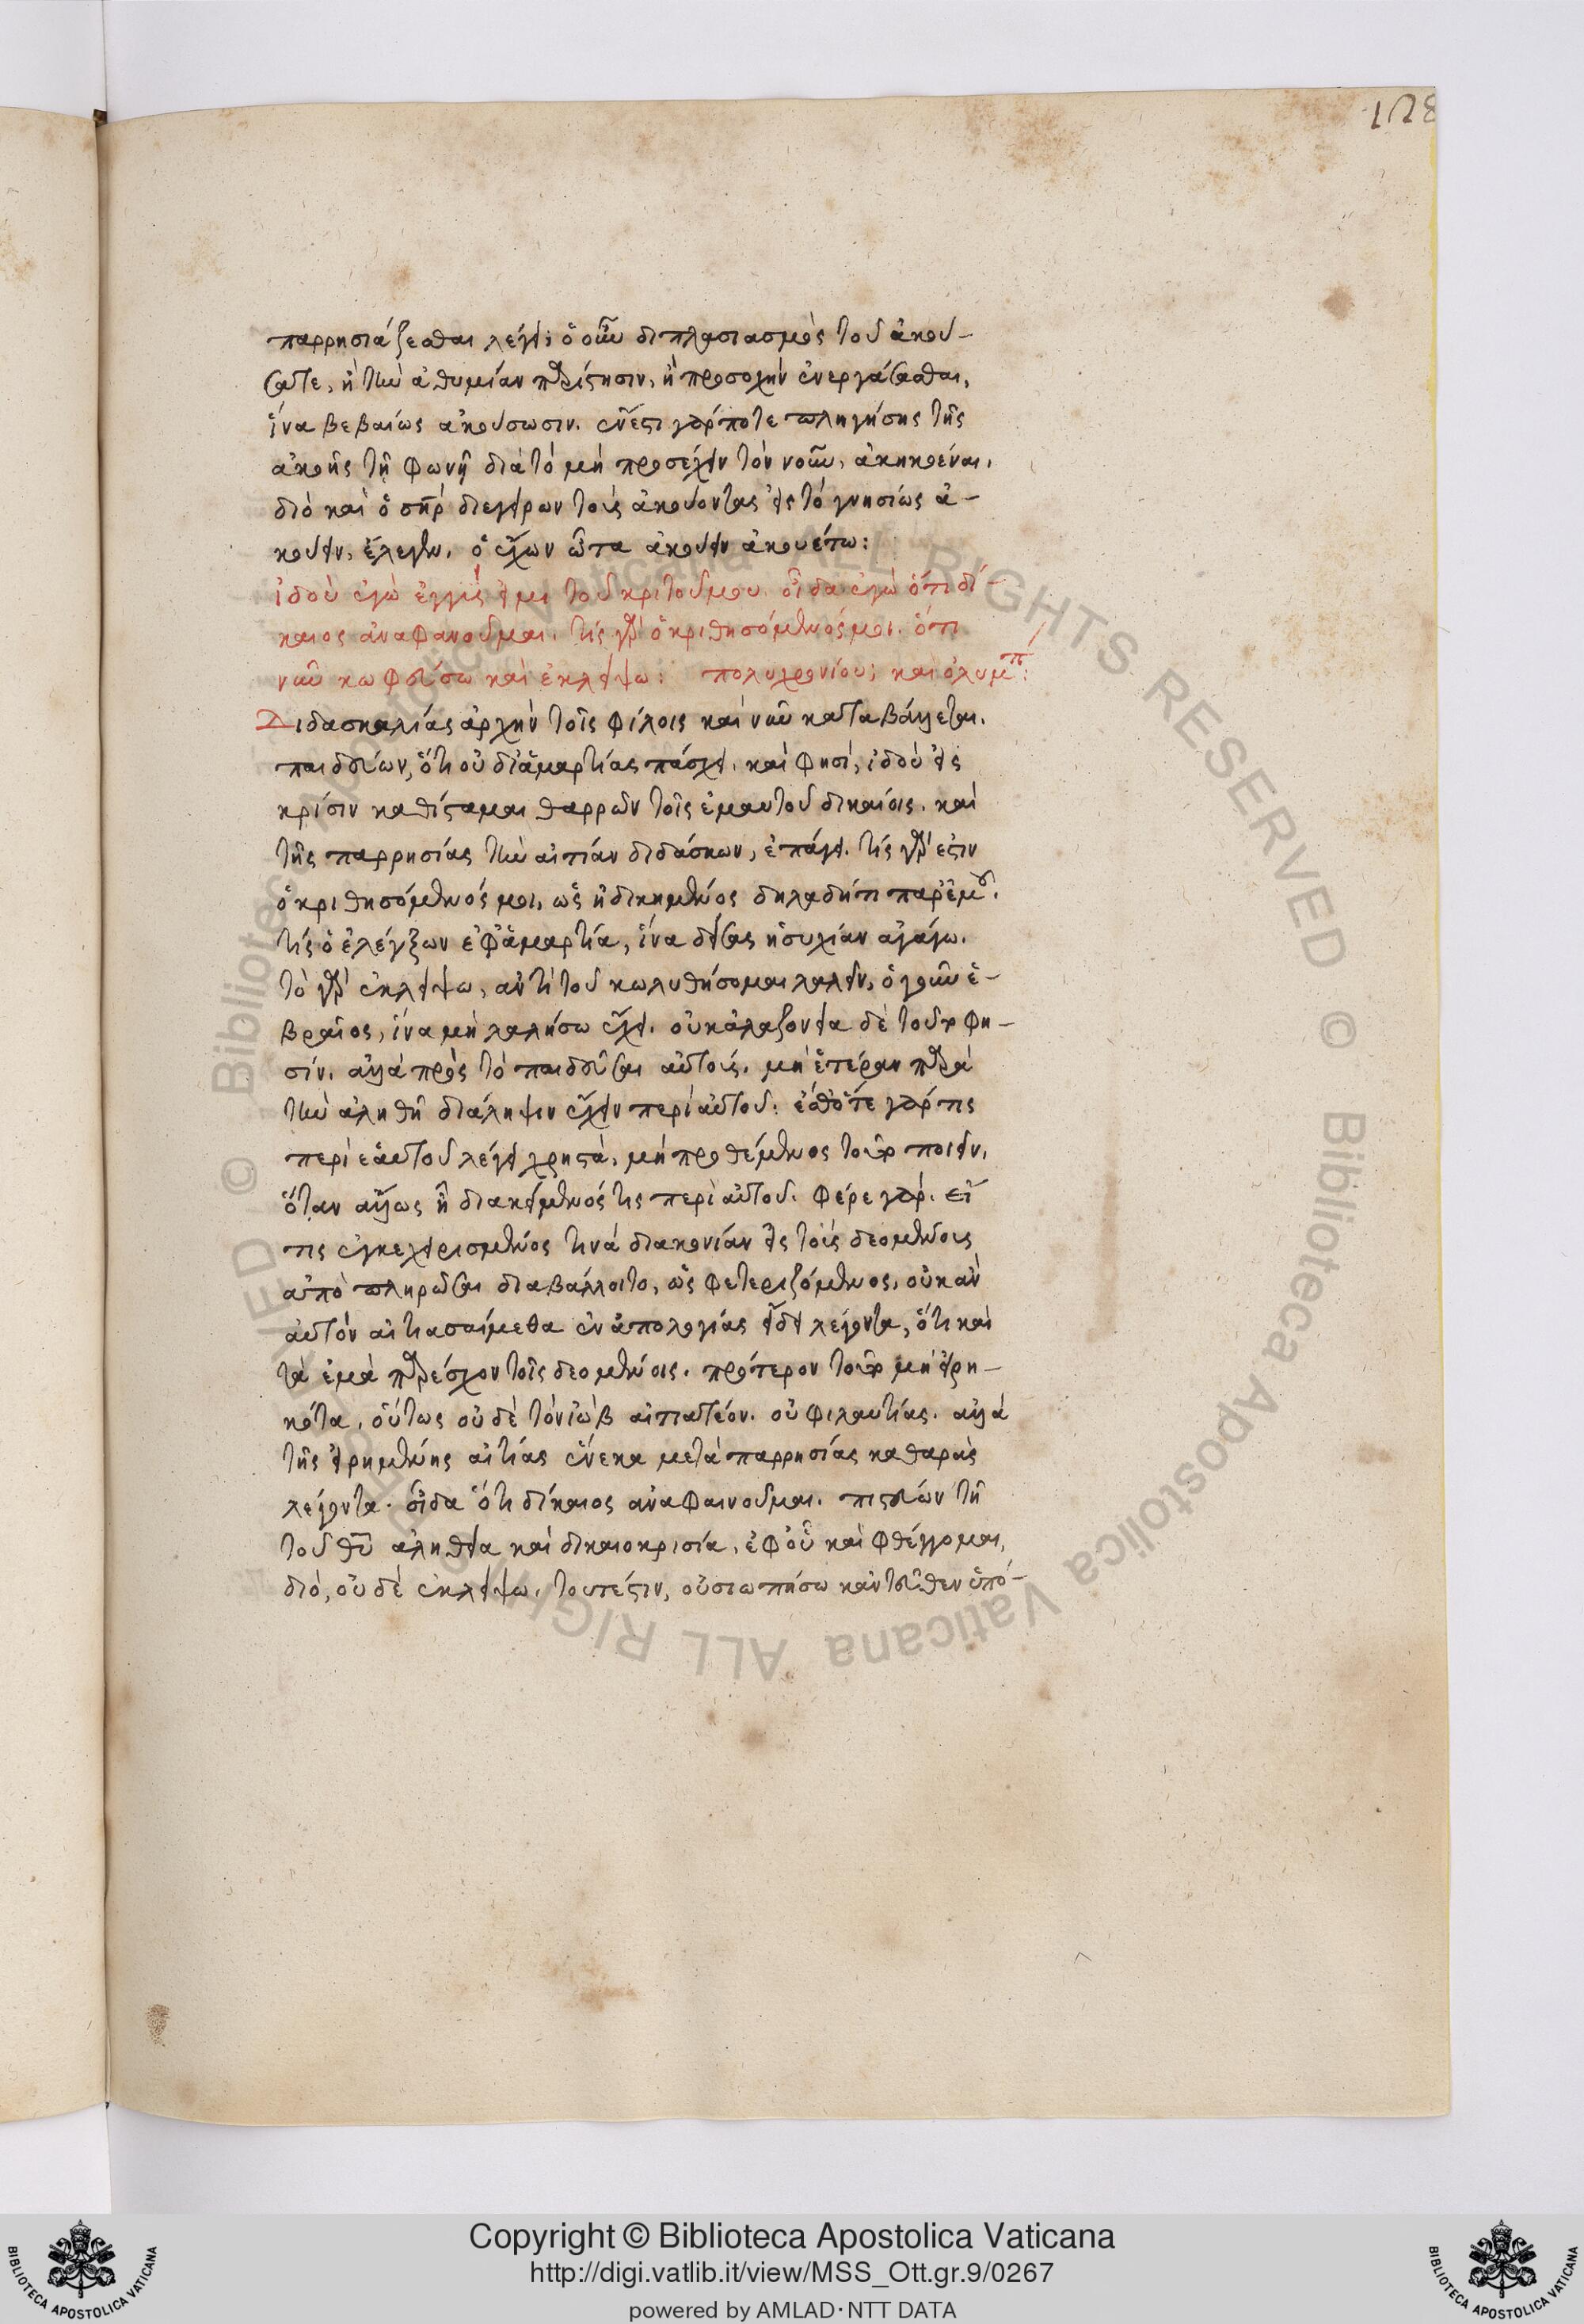 128
παρρησιάζεσθαι λέγει; ὁ οὖν διπλασιασμὸς τοῦ ἀκού-
σατε, ἢ τὴν ἀθυμίαν παρίστησιν, ἢ προσοχὴν ἐνεργάσασθαι,
ἵνα βεβαίως ἀκούσωσιν. ἔνεστι γάρ ποτε πληγήσης τῆς
ἀκοῆς τῇ φωνῇ διὰ τὸ μὴ προσέχειν τὸν νοῦν, ἀκηκοέναι,
διὸ καὶ ὁ σηρ διεγείρων τοὺς ἀκούοντας εἰς τὸ γνησίως ἀ-
κούειν, ἔλεγεν. ὁ ἔχων ὦτα ἀκούειν ἀκουέτω:
ἰδοὺ ἐγὼ ἐγγύς εἰμι τοῦ κρίτοῦ μου. οἶδα ἐγὼ ὅτι δί-
καιος ἀναφανοῦμαι. τίς γὰρ ὁ κριθησόμενός μοι. ὅτι
νῦν κωφεύσω καὶ ἐκλείψω: πολυχρονίου; καὶ ὀλυμπ:
Διδασκαλίας ἀρχὴν τοῖς φίλοις καὶ νῦν καταβάλλεται.
παιδεύων, ὅτι οὐ δι' ἁμαρτίας πάσχει. καὶ φησὶ, ἰδοὺ εἰς
κρίσιν καθίσταμαι θαρρῶν τοῖς ἐμαυτοῦ δικαίοις. καὶ
τῆς παρρησίας τὴν αἰτίαν διδάσκων, ἐπάγει. τίς γάρ ἐστιν
ὁ κριθησόμενός μοι, ὡς ἠδικημένος δηλαδή τι παρ' ἐμοῦ.
τίς ὁ ἐλέγξων ἐφ' ἁμαρτία, ἵνα δείσας ἡσυχίαν ἀγάγω.
τὸ γὰρ ἐκλείψω, ἀντὶ τοῦ κωλυθήσομαι λαλεῖν, ὁ γοῦν ἑ-
βραῖος, ἵνα μὴ λαλήσω ἔχει. οὐκ ἀλαζονεία δὲ τοῦτο φη-
σίν. ἀλλὰ πρὸς τὸ παιδεῦσαι αὐτοὺς. μὴ ἑτέραν παρὰ
τὴν ἀληθῆ διάληψιν ἔχειν περὶ αὐτοῦ. ἔσθ' ὅτε γάρ τις
περὶ ἑαυτοῦ λέγει χρηστὰ, μὴ προθέμενος τοῦτο ποιεῖν,
ὅταν ἄλλως ᾖ διακείμενός τις περὶ αὐτοῦ. φέρε γάρ. εἴ
τις ἐγκεχειρισμένος τινὰ διακονίαν εἰς τοὺς δεομένους
ἀποπληρῶσαι διαβάλλοιτο, ὡς φετεριζόμενος, οὐκ ἂν
αὐτὸν αἰτιασαίμεθα ἐν ἀπολογίας εἴδει λέγοντα, ὅτι καὶ
τὰ ἐμὰ παρέσχον τοῖς δεομένοις. πρότερον τοῦτο μὴ εἰρη-
κότα, οὕτως οὐδὲ τὸν ἰὼβ αἰτιατέον. οὐ φιλαυτίας. ἀλλὰ
τῆς εἰρημένης αἰτίας ἕνεκα μετὰ παρρησίας καθαρᾶς
λέγοντα. οἶδα ὅτι δίκαιος ἀναφαινοῦμαι. πιστεύων τῇ
τοῦ θυ ἀληθεία καὶ δικαιοκρισία, ἐφ' οὗ καὶ φθέγγομαι,
διὸ, οὐδὲ ἐκλείψω, τουτέστιν, οὐ σιωπήσω κἀντεῦθεν ὑπό-
Copyright © Biblioteca Apostolica Vaticana
http://digi.vatlib.it/view/MSS_Ott.gr.9/0267
powered by AMLAD·NTT DATA